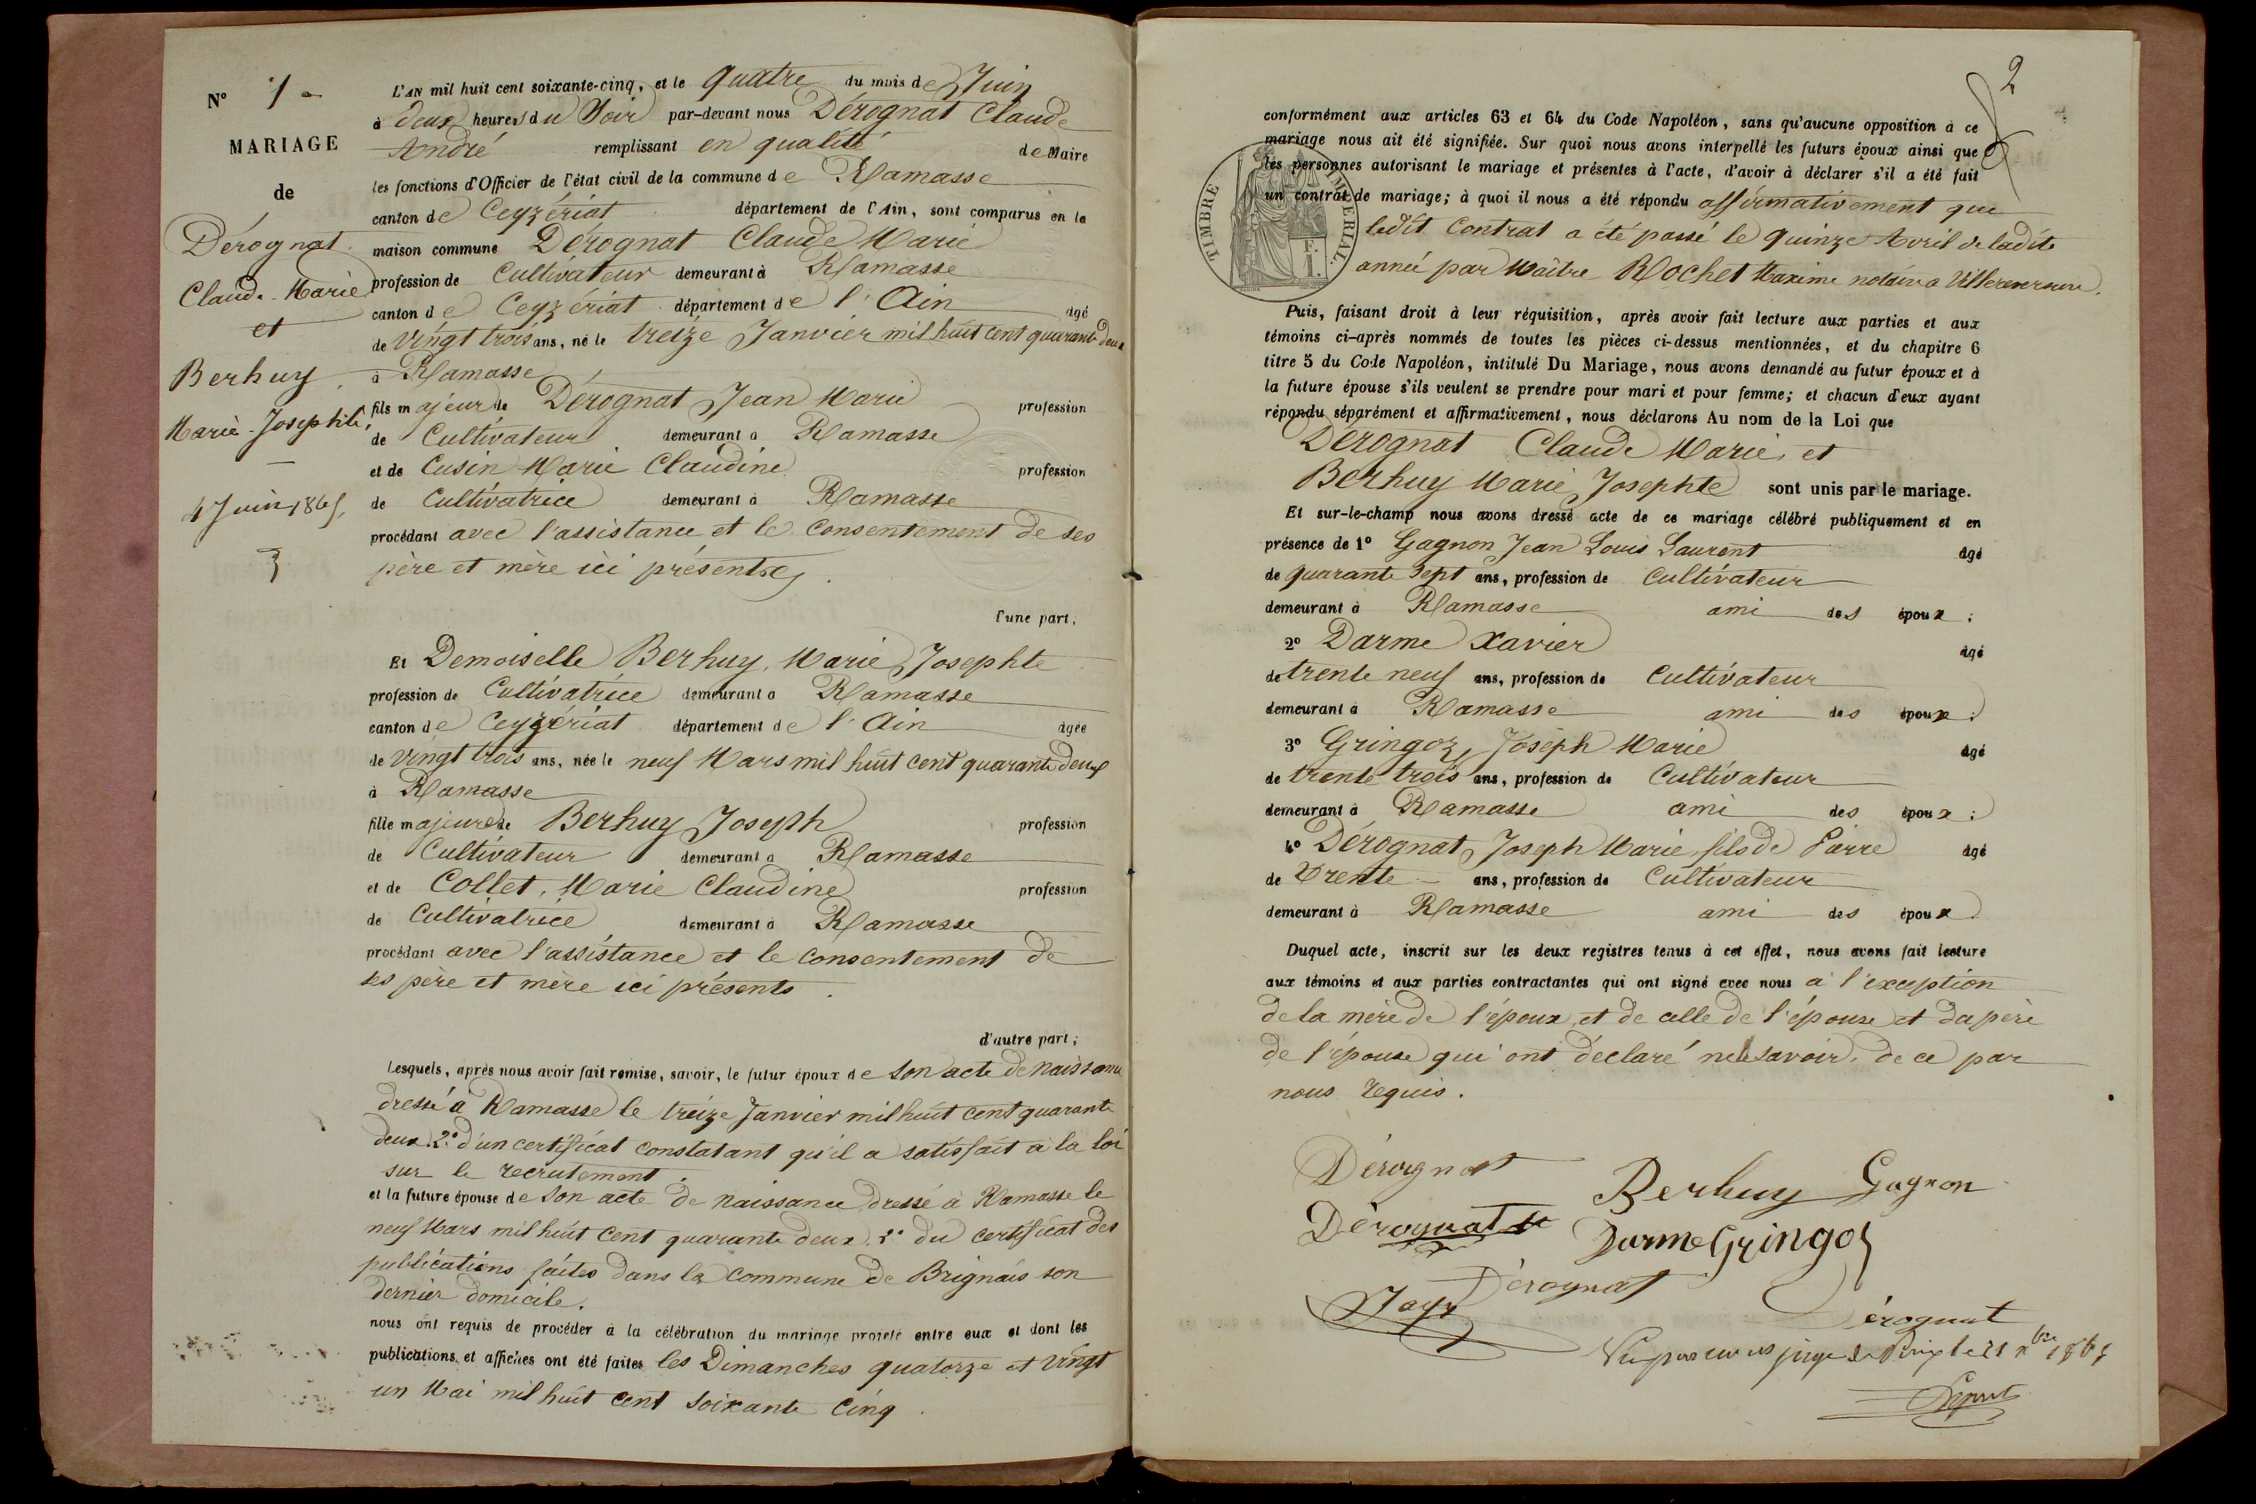 N° 1
MARIAGE
de
Dérognat
Claude Marie
et
Berhuy
Marie Josephte
4 Juin 1865,
L'AN mil huit cent soixante-cinq, et le quatre du mois de Juin
à deux heures du Soir par-devant nous Dérognat Claude
André remplissant en qualité de Maire
les fonctions d'Officier de l'état civil de la commune de Ramasse
canton de Ceyzériat département de l'Ain, sont comparus en la
maison commune Dérognat Claude Marie
profession de Cultivateur demeurant à Ramasse
canton de Ceyzériat département de l'Ain âgé
de vingt trois ans, né le treize Janvier mil huit cent quarante deux
à Ramasse
fils majeur de Dérognat Jean Marie profession
de Cultivateur demeurant à Ramasse
et de Cusin Marie Claudine profession
de Cultivatrice demeurant à Ramasse
procédant avec l'assistance et le consentement de ses
père et mère ici présents
l'une part,
Et Demoiselle Berhuy, Marie Josephte
profession de Cultivatrice demeurant à Ramasse
canton de Ceyzériat département de l'Ain âgée
de vingt trois ans, née le neuf Mars mil huit cent quarante deux
à Ramasse
fille majeure de Berhuy Joseph profession
de Cultivateur demeurant à Ramasse
et de Collet, Marie Claudine profession
de Cultivatrice demeurant à Ramasse
procédant avec l'assistance et le consentement de
ses père et mère ici présents.
d'autre part;
Lesquels, après nous avoir fait remise, savoir, le futur époux de son acte de naissance
dressé à Ramasse le treize Janvier mil huit cent quarante
deux. 2° d'un certificat constatant qu'il a satisfait à la loi
sur le recrutement.
et la future épouse de son acte de naissance dressé à Ramasse le
neuf Mars mil huit cent quarante deux. 2° du certificat des
publications faites dans la commune de Brignais son
dernier domicile.
nous ont requis de procéder à la célébration du mariage projeté entre eux et dont les
publications et affiches ont été faites les Dimanches quatorze et vingt
un Mai mil huit cent soixante cinq.
2
TIMBRE IMPERIAL.
F.
1.
conformément aux articles 63 et 64 du Code Napoléon, sans qu'aucune opposition à ce
mariage nous ait été signifiée. Sur quoi nous avons interpellé les futurs époux ainsi que
les personnes autorisant le mariage et présentes à l'acte, d'avoir à déclarer s'il a été fait
un contrat de mariage; à quoi il nous a été répondu affirmativement que
ledit Contrat a été passé le quinze Avril de ladite
année par Maître Rochet Maxime notaire à Villereversure.
Puis, faisant droit à leur réquisition, après avoir fait lecture aux parties et aux
témoins ci-après nommés de toutes les pièces ci-dessus mentionnées, et du chapitre 6
titre 5 du Code Napoléon, intitulé Du Mariage, nous avons demandé au futur époux et à
la future épouse s'ils veulent se prendre pour mari et pour femme; et chacun d'eux ayant
répondu séparément et affirmativement, nous déclarons Au nom de la Loi que
Dérognat Claude Marie, et
Berhuy Marie Josephte sont unis par le mariage.
Et sur-le-champ nous avons dressé acte de ce mariage célébré publiquement et en
présence de 1° Gagnon Jean Louis Laurent âgé
de quarante sept ans, profession de Cultivateur
demeurant à Ramasse ami des époux;
2° Darme Xavier âgé
de trente neuf ans, profession de Cultivateur
demeurant à Ramasse ami des époux;
3° Gringoz, Joseph Marie âgé
de trente trois ans, profession de Cultivateur
demeurant à Ramasse ami des époux;
4° Dérognat, Joseph Marie, fils de Pierre âgé
de Trente ans, profession de Cultivateur
demeurant à Ramasse ami des époux
Duquel acte, inscrit sur les deux registres tenus à cet effet, nous avons fait lecture
aux témoins et aux parties contractantes qui ont signé avec nous à l'exception
de la mère de l'époux, et de celle de l'épouse et du père
de l'épouse qui ont déclaré ne le savoir, de ce par
nous requis.
Dérognat
Berhuy Gagnon
Dérognat
Darme Gringoz
Dérognat
Dérognat
Vu par nous juge de Paix le 21 Xbre 1865